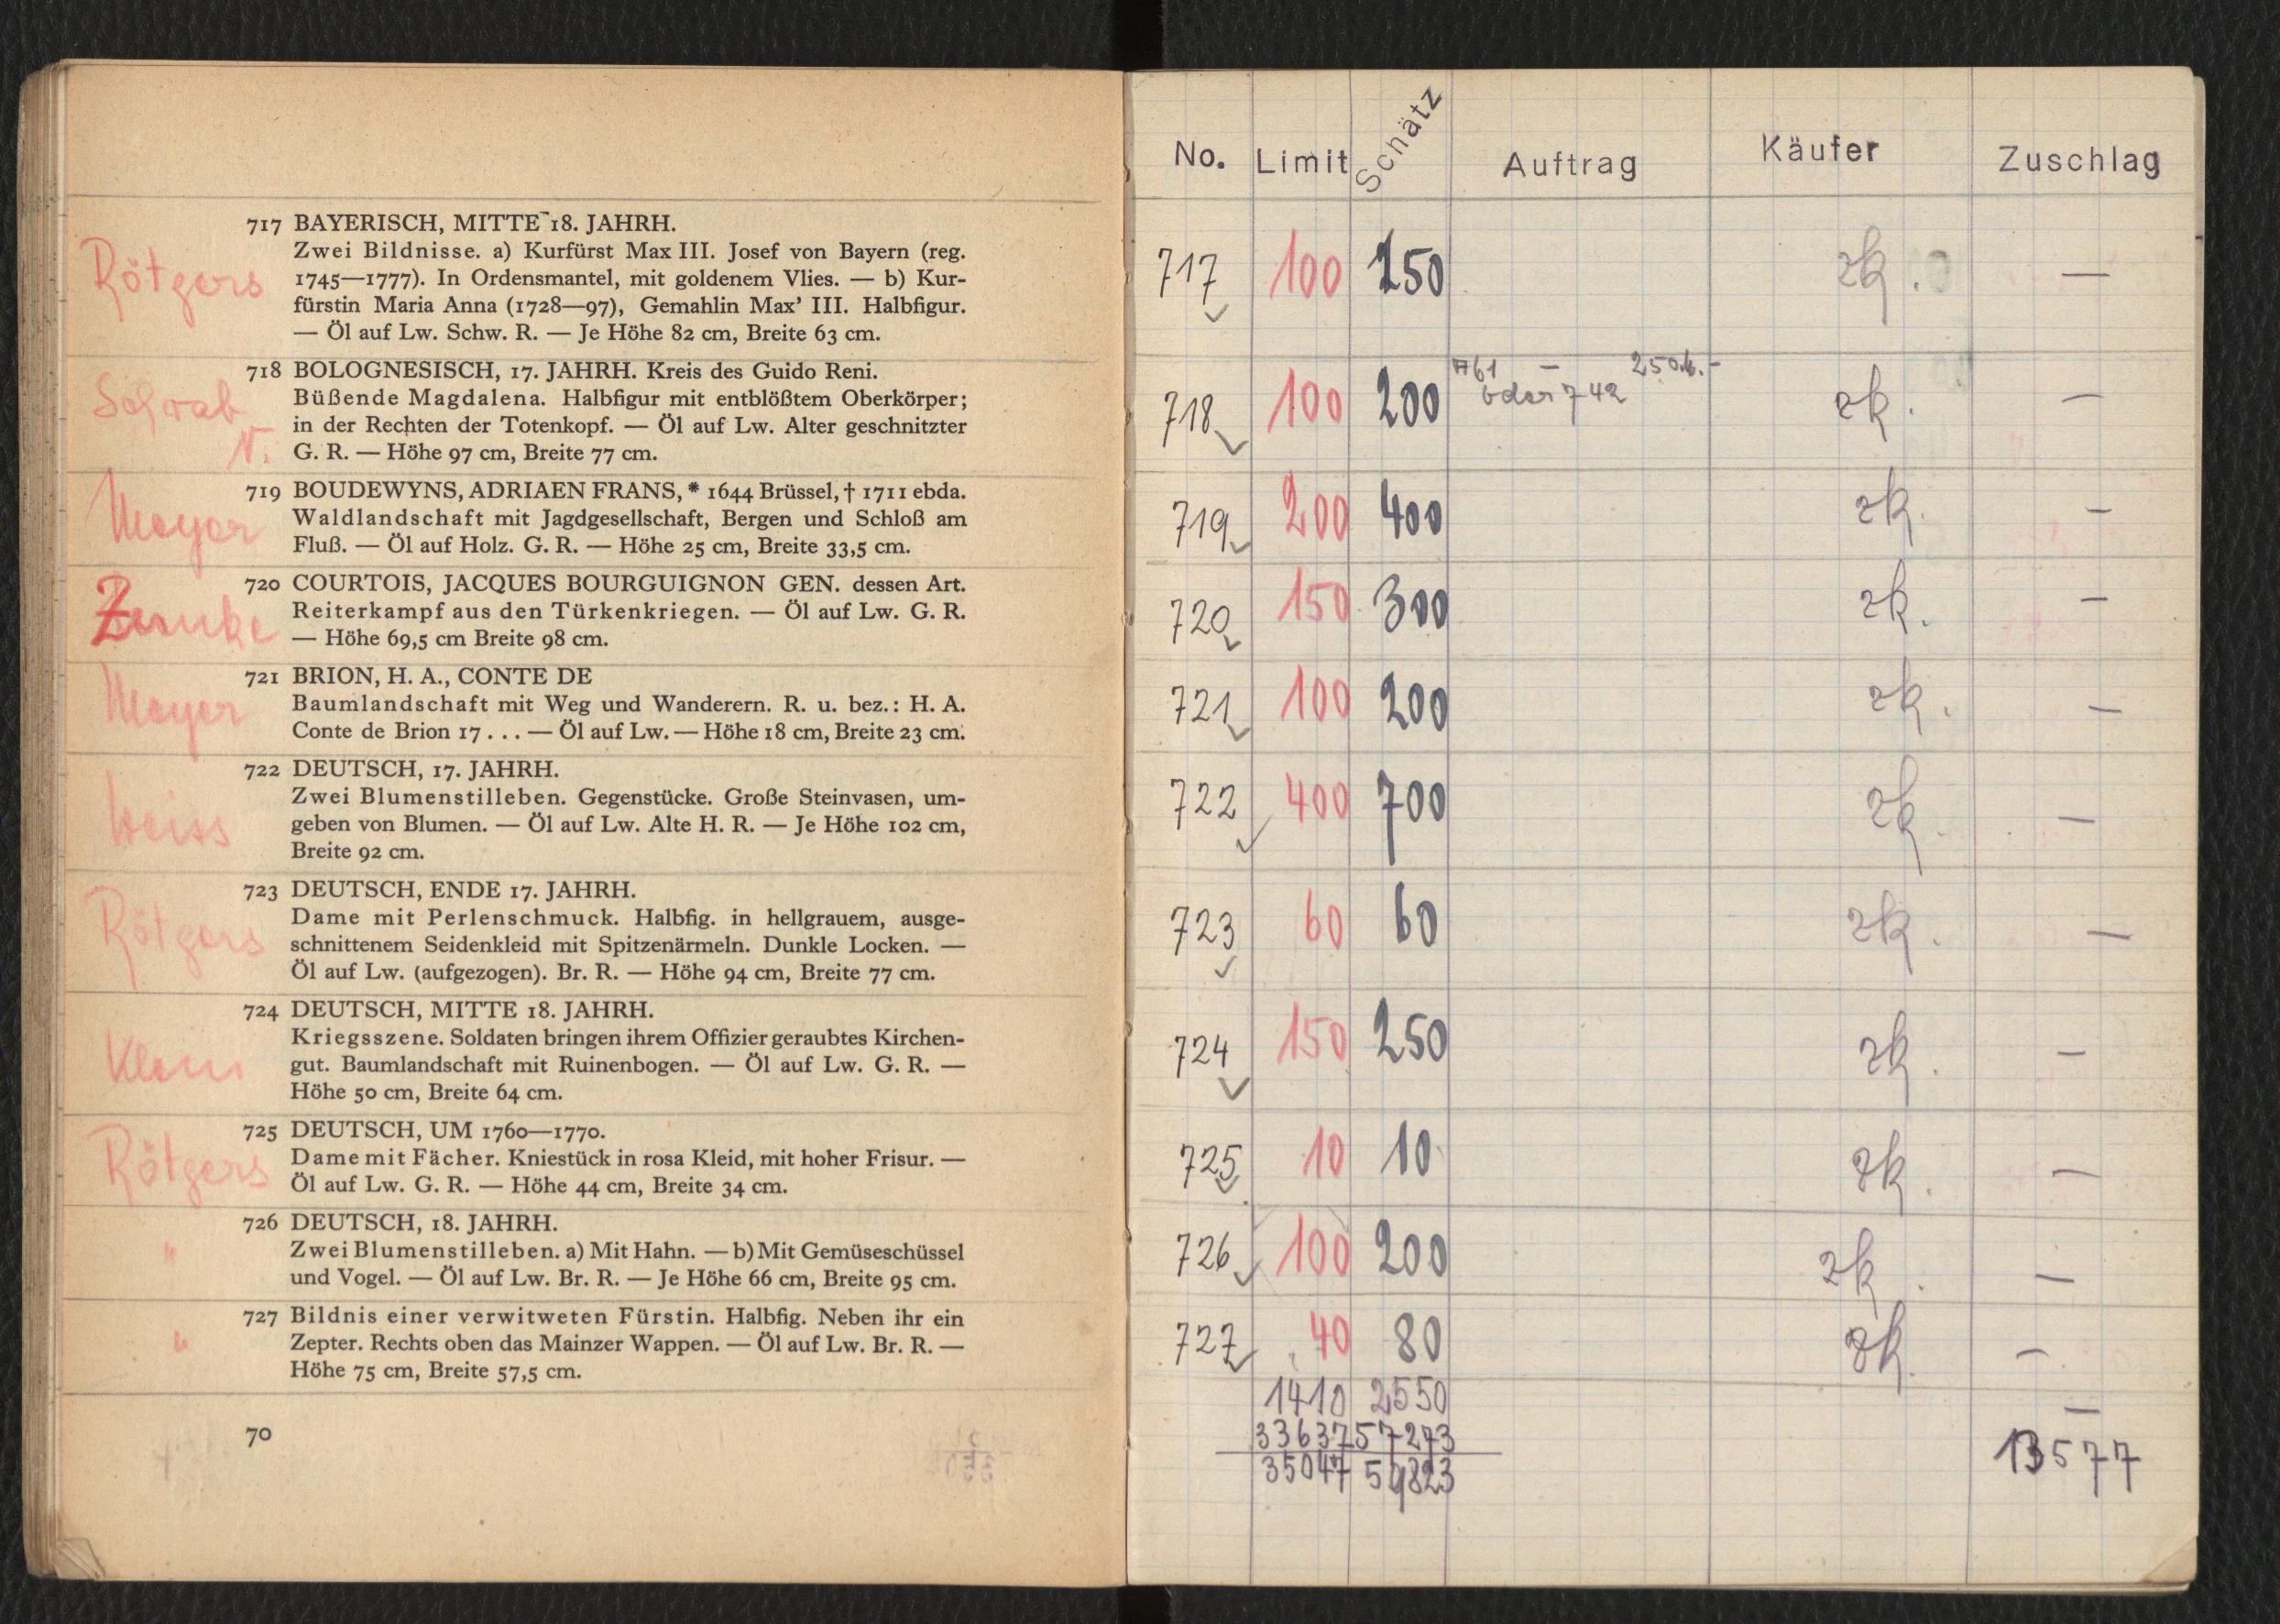 717 BAYERISCH, MITTE 18. JAHRH.
Zwei Bildnisse. a) Kurfürst Max III. Josef von Bayern (reg.
1745—1777). In Ordensmantel, mit goldenem Vlies. — b) Kur-
fürstin Maria Anna (1728—97), Gemahlin Max' III. Halbfigur.
— Öl auf Lw. Schw. R. — Je Höhe 82 cm, Breite 63 cm.
Rötgers
718 BOLOGNESISCH, 17. JAHRH. Kreis des Guido Reni.
Büßende Magdalena. Halbfigur mit entblößtem Oberkörper;
in der Rechten der Totenkopf. — Öl auf Lw. Alter geschnitzter
G. R. — Höhe 97 cm, Breite 77 cm.
Schrab
N.
719 BOUDEWYNS, ADRIAEN FRANS, * 1644 Brüssel, † 1711 ebda.
Waldlandschaft mit Jagdgesellschaft, Bergen und Schloß am
Fluß. — Öl auf Holz. G. R. — Höhe 25 cm, Breite 33,5 cm.
Meyer
720 COURTOIS, JACQUES BOURGUIGNON GEN. dessen Art.
Reiterkampf aus den Türkenkriegen. — Öl auf Lw. G. R.
— Höhe 69,5 cm Breite 98 cm.
721 BRION, H. A., CONTE DE
Baumlandschaft mit Weg und Wanderern. R. u. bez.: H. A.
Conte de Brion 17 . . . — Öl auf Lw. — Höhe 18 cm, Breite 23 cm.
Meyer
722 DEUTSCH, 17. JAHRH.
Zwei Blumenstilleben. Gegenstücke. Große Steinvasen, um-
geben von Blumen. — Öl auf Lw. Alte H. R. — Je Höhe 102 cm,
Breite 92 cm.
Weiss
723 DEUTSCH, ENDE 17. JAHRH.
Dame mit Perlenschmuck. Halbfig. in hellgrauem, ausge-
schnittenem Seidenkleid mit Spitzenärmeln. Dunkle Locken. —
Öl auf Lw. (aufgezogen). Br. R. — Höhe 94 cm, Breite 77 cm.
Rötgers
724 DEUTSCH, MITTE 18. JAHRH.
Kriegsszene. Soldaten bringen ihrem Offizier geraubtes Kirchen-
gut. Baumlandschaft mit Ruinenbogen. — Öl auf Lw. G. R. —
Höhe 50 cm, Breite 64 cm.
Klein
725 DEUTSCH, UM 1760—1770.
Dame mit Fächer. Kniestück in rosa Kleid, mit hoher Frisur. —
Öl auf Lw. G. R. — Höhe 44 cm, Breite 34 cm.
Rötgers
726 DEUTSCH, 18. JAHRH.
Zwei Blumenstilleben. a) Mit Hahn. — b) Mit Gemüseschüssel
und Vogel. — Öl auf Lw. Br. R. — Je Höhe 66 cm, Breite 95 cm.
"
727 Bildnis einer verwitweten Fürstin. Halbfig. Neben ihr ein
Zepter. Rechts oben das Mainzer Wappen. — Öl auf Lw. Br. R. —
Höhe 75 cm, Breite 57,5 cm.
"
70
No. Limit Schätz Auftrag Käufer Zuschlag
717 100 250 zk. —
761 — 250.-
718 100 200 oder 742 zk. —
719 200 400 zk. —
720 150 300 zk. —
721 100 200 zk. —
722 400 700 zk. —
723 60 60 zk. —
724 150 250 zk. —
725 10 10 zk. —
726 100 200 zk. —
727 40 80 zk. —
1410 2550 —
33637 57273
35047 59823 13577